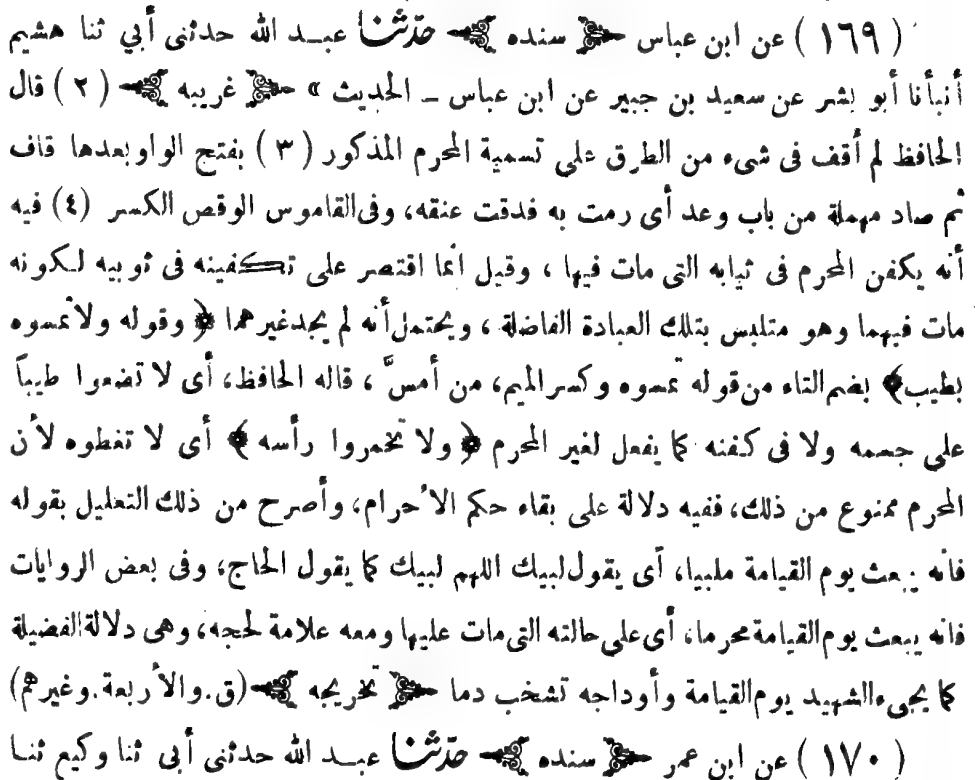 ( ١٦٩ ) عن ابن عباس ﴿ سنده ﴾ حدّثنا عبد الله حدثنى أبي ثنا هشيم
أنبأنا أبو بشر عن سعيد بن جبير عن ابن عباس ــ الحديث » ﴿ غريبه ﴾ ( ٢ ) قال
الحافظ لم أقف فى شىء من الطرق على تسمية المحرم المذكور ( ٣ ) بفتح الواو بعدها قاف
ثم صاد مهملة من باب وعد أى رمت به فدقت عنقه، وفى القاموس الوقص الكسر (٤) فيه
أنه يكفن المحرم فى ثيابه التى مات فيها ، وقيل انما اقتصر على تكفينه فى ثوبيه لكونه
مات فيهما وهو متلبس بتلك العبادة الفاضلة ، ويحتمل أنه لم يجد غيرهما ﴿ وقوله ولا تمسوه
بطيب ﴾ بضم التاء من قوله تمسوه وكسر الميم، من أمسَّ ، قاله الحافظ، أى لا تضعوا طيباً
على جسمه ولا فى كفنه كما يفعل لغير المحرم ﴿ ولا تخمروا رأسه ﴾ أى لا تغطوه لأن
المحرم ممنوع من ذلك، ففيه دلالة على بقاء حكم الاحرام، وأصرح من ذلك التعليل بقوله
فانه يبعث يوم القيامة ملبيا، أى يقول لبيك اللهم لبيك كما يقول الحاج، وفى بعض الروايات
فانه يبعث يوم القيامة محرما، أى على حالته التى مات عليها ومعه علامة لحجه، وهى دلالة الفضيلة
كما يجىء الشهيد يوم القيامة وأوداجه تشخب دما ﴿ تخريجه ﴾ (ق. والأربعة. وغيرهم)
( ١٧٠ ) عن ابن عمر ﴿ سنده ﴾ حدّثنا عبد الله حدثنى أبى ثنا وكيع ثنا